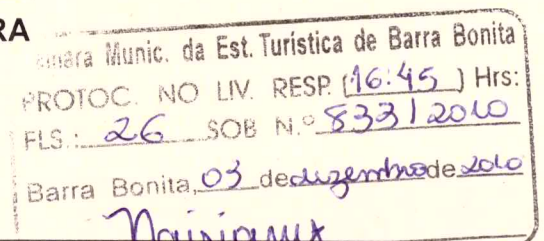 RA
Câmara Munic. da Est. Turística de Barra Bonita
PROTOC. NO LIV. RESP. (16:45) Hrs:
FLS.: 26 SOB N.º 833/2010
Barra Bonita, 03 de dezembro de 2010